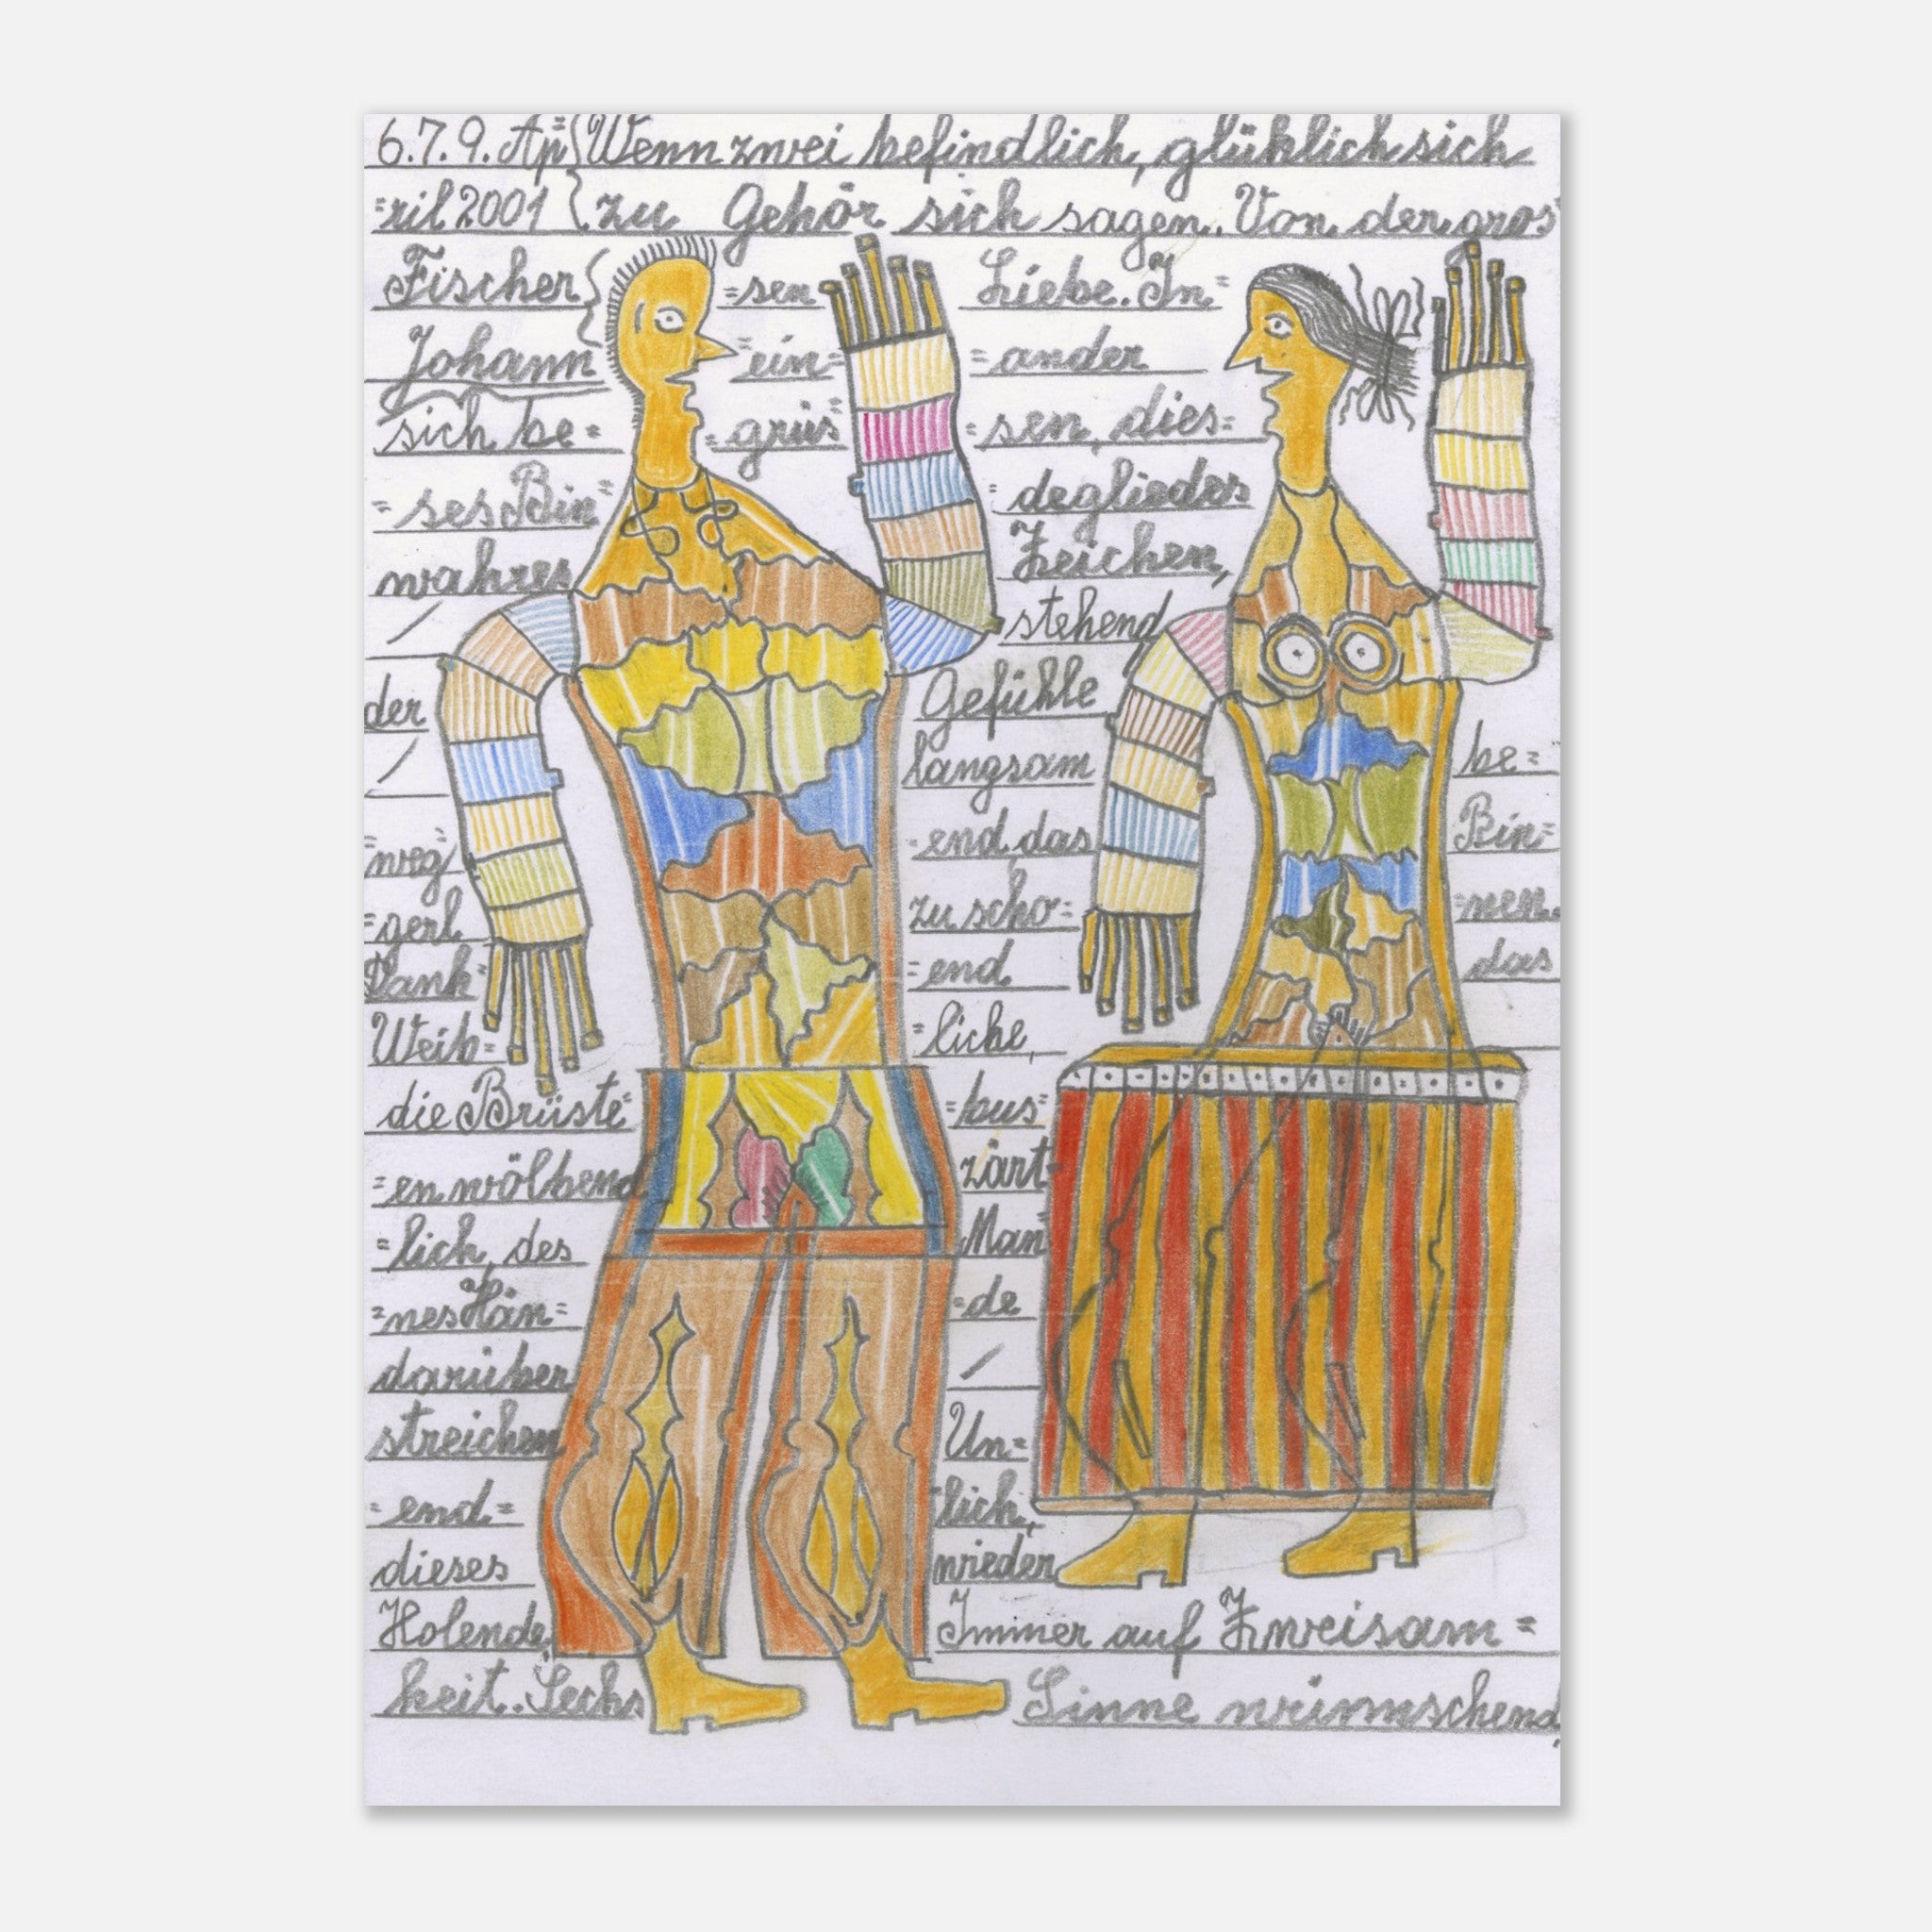 6.7.9. Ap= { Wenn zwei befindlich, glüklich sich
=ril 2001 } zu Gehör sich sagen. Von der gros=
Fischer { =sen Liebe. In=
Johann =ein= =ander
sich be= =grüs= =sen, dies=
=ses Bin= =degliedes
wahres Zeichen,
/ stehend
der Gefühle be=
/ langsam
=weg= =end das Bin=
=gerl zu scho= =nen.
Dank= =end das
Weib= =liche,
die Brüste =bus=
=en wölbend zärt=
=lich, des Man
=nes Hän= =de
darüber /
streichen Un=
=end= lich,
dieses wieder
Holende, Immer auf Zweisam=
keit. Sechs Sinne wünnschend,